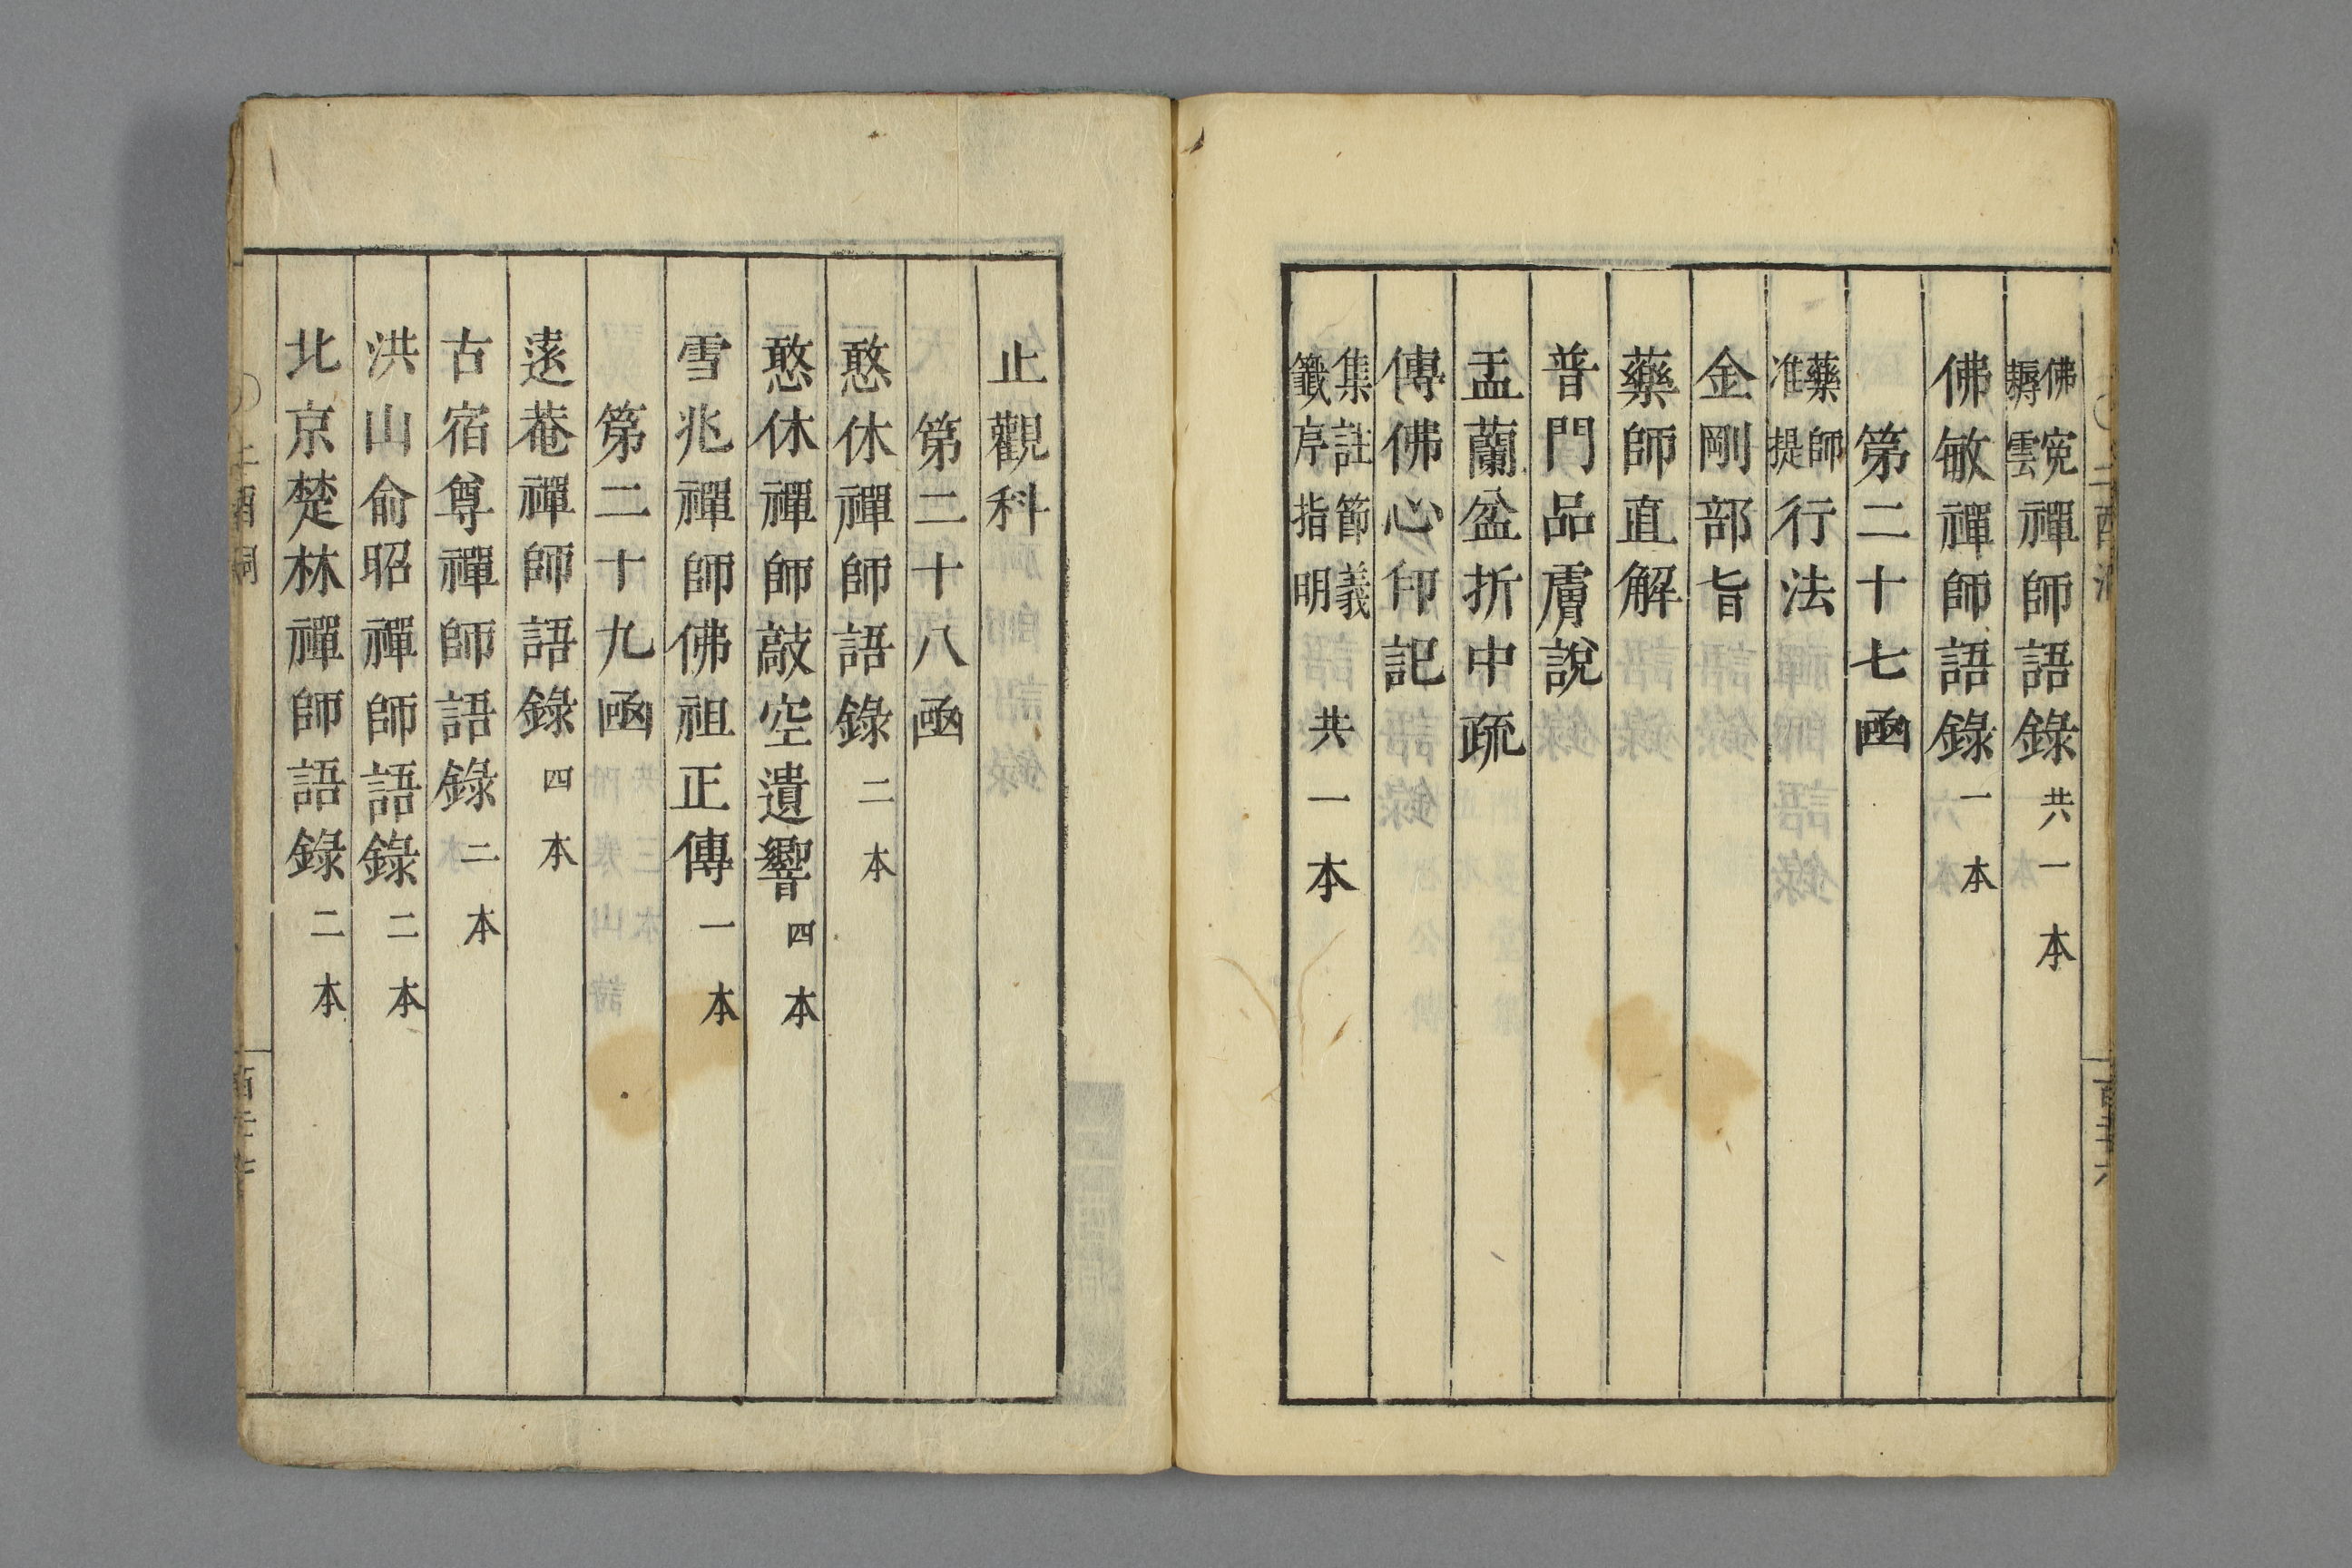 佛寃
耨雲禪師語錄共一本
佛敏禪師語錄一本
第二十七凾
藥師
准提行法
金剛部旨
藥師直解
普門品膚說
盂蘭盆折中疏
傳佛心印記
集註節義
籤序指明共一本
止觀科
第二十八凾
憨休禪師語錄二本
憨休禪師敲空遺響四本
雪兆禪師佛祖正傳一本
第二十九凾
遠菴禪師語錄四本
古宿尊禪師語錄二本
洪山俞昭禪師語錄二本
北京楚林禪師語錄二本